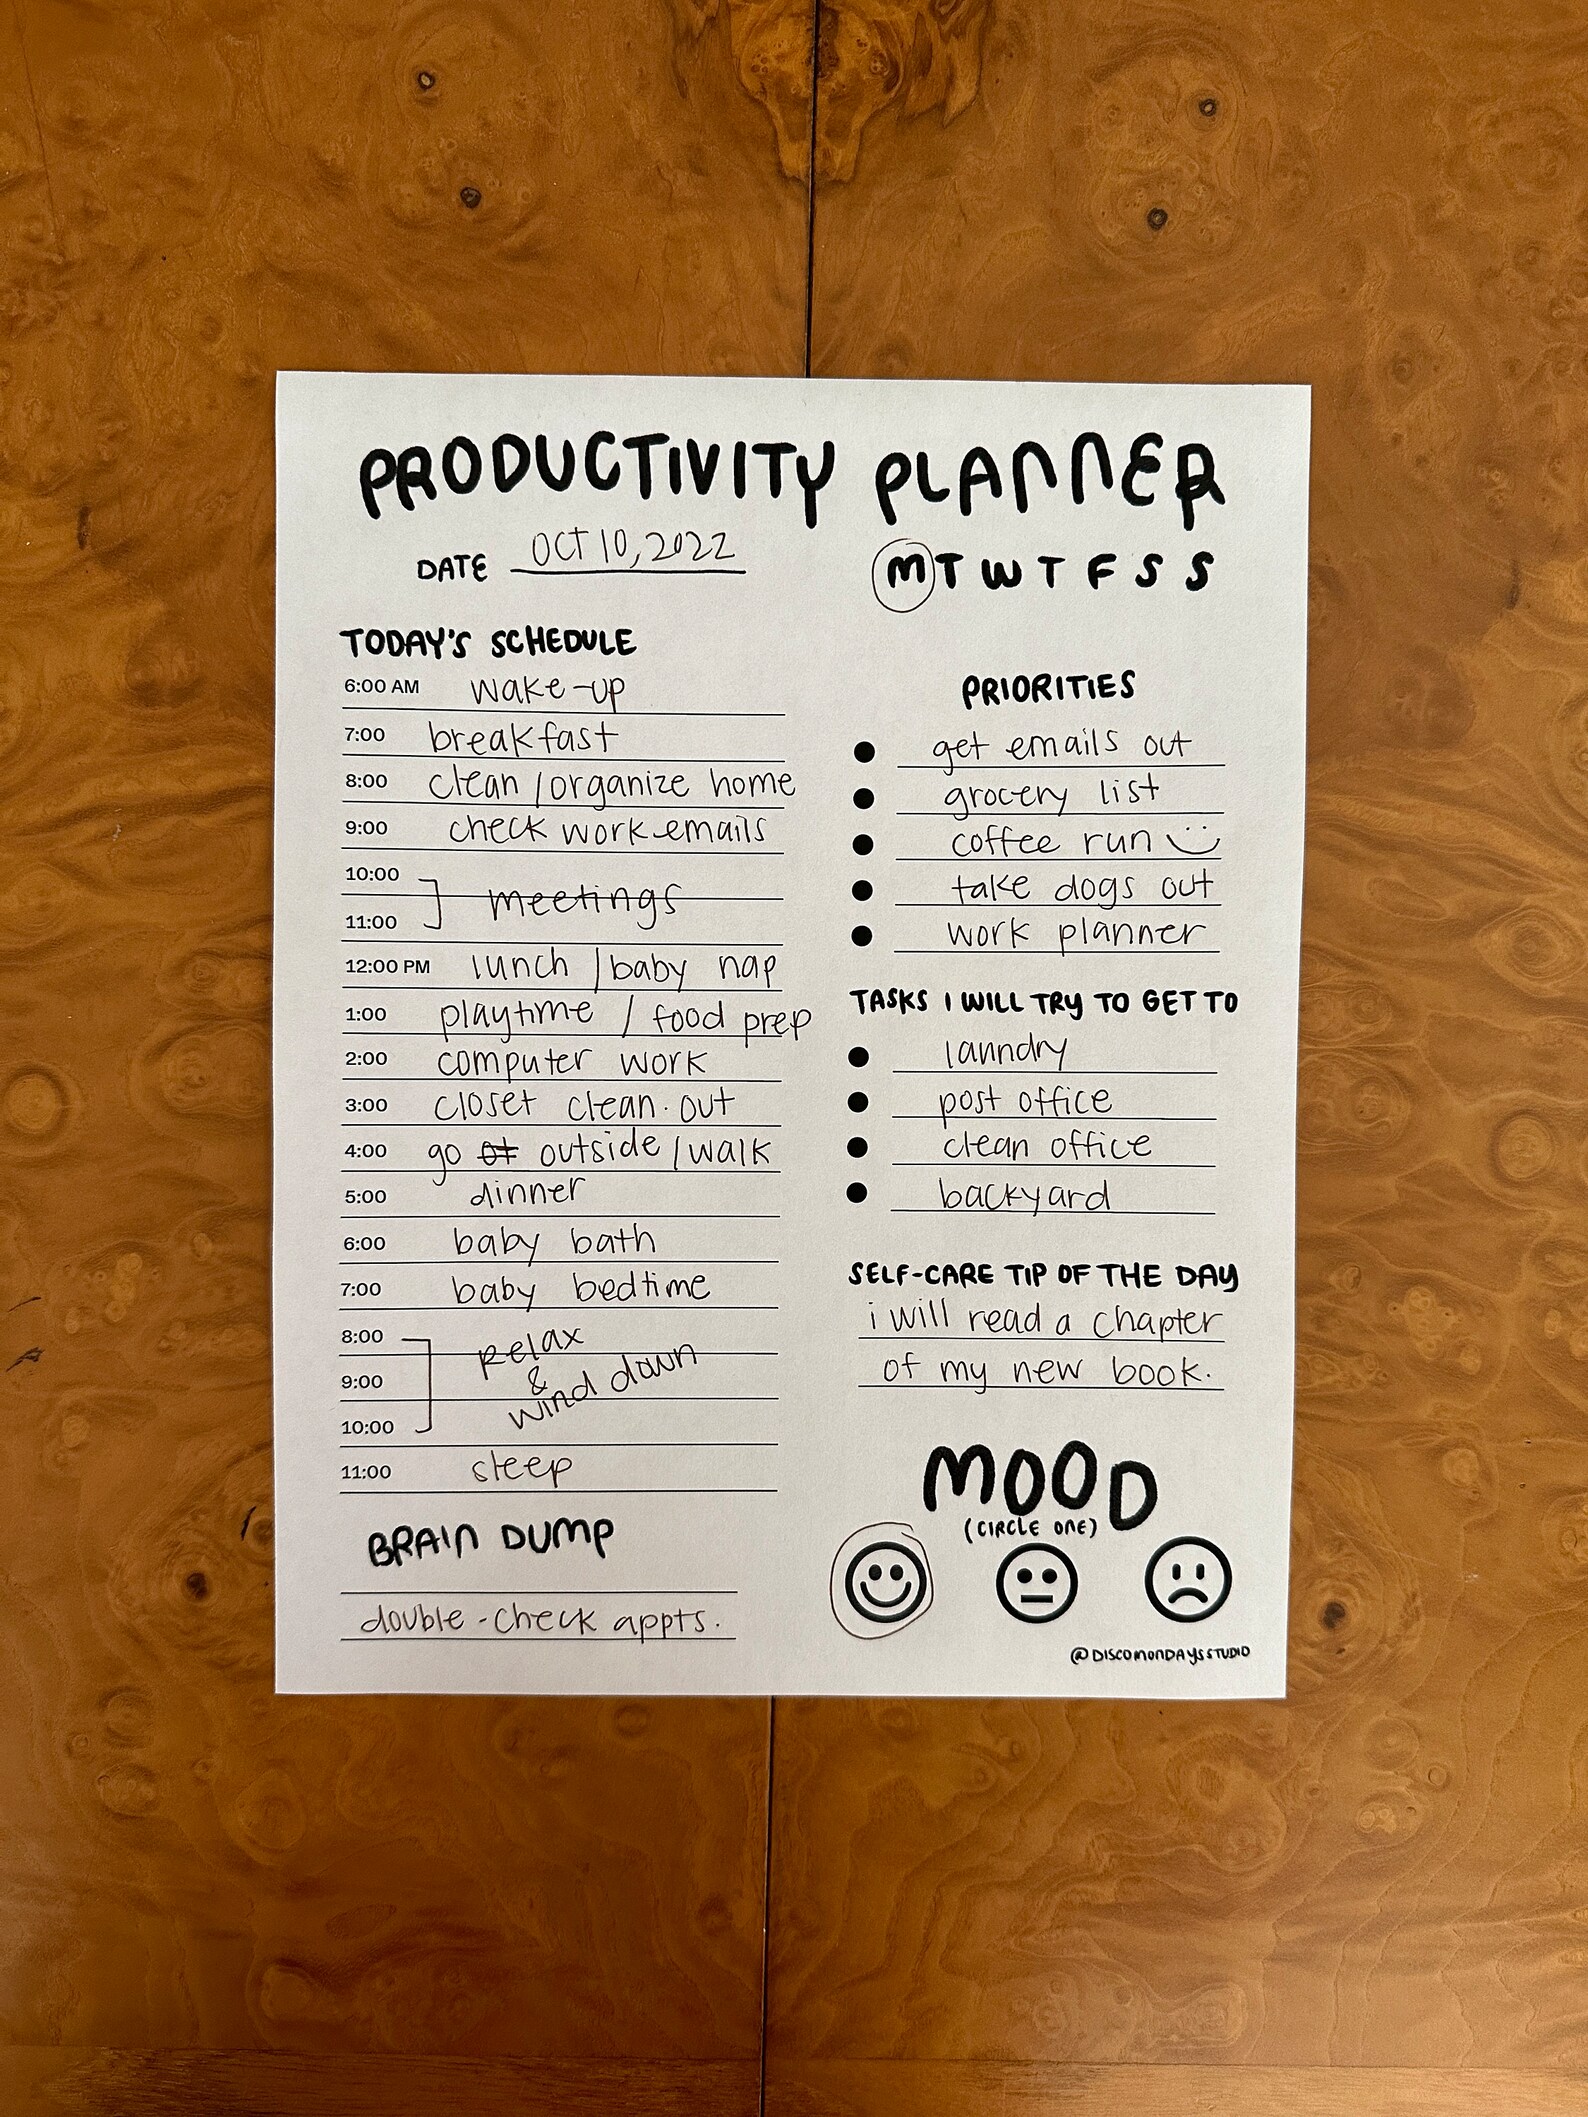 PRODUCTIVITY PLANNER
DATE OCT 10, 2022
M T W T F S S
TODAY'S SCHEDULE
6:00 AM wake-up
7:00 breakfast
8:00 clean / organize home
9:00 check work emails
10:00
meetings
11:00
12:00 PM lunch / baby nap
1:00 playtime / food prep
2:00 computer work
3:00 closet clean-out
4:00 go ot outside / walk
5:00 dinner
6:00 baby bath
7:00 baby bedtime
8:00 relax
9:00 &
10:00 wind down
11:00 sleep
BRAIN DUMP
double-check appts.
PRIORITIES
get emails out
grocery list
coffee run
take dogs out
work planner
TASKS I WILL TRY TO GET TO
laundry
post office
clean office
backyard
SELF-CARE TIP OF THE DAY
i will read a chapter
of my new book.
MOOD
(CIRCLE ONE)
@DISCOMONDAYSSTUDIO